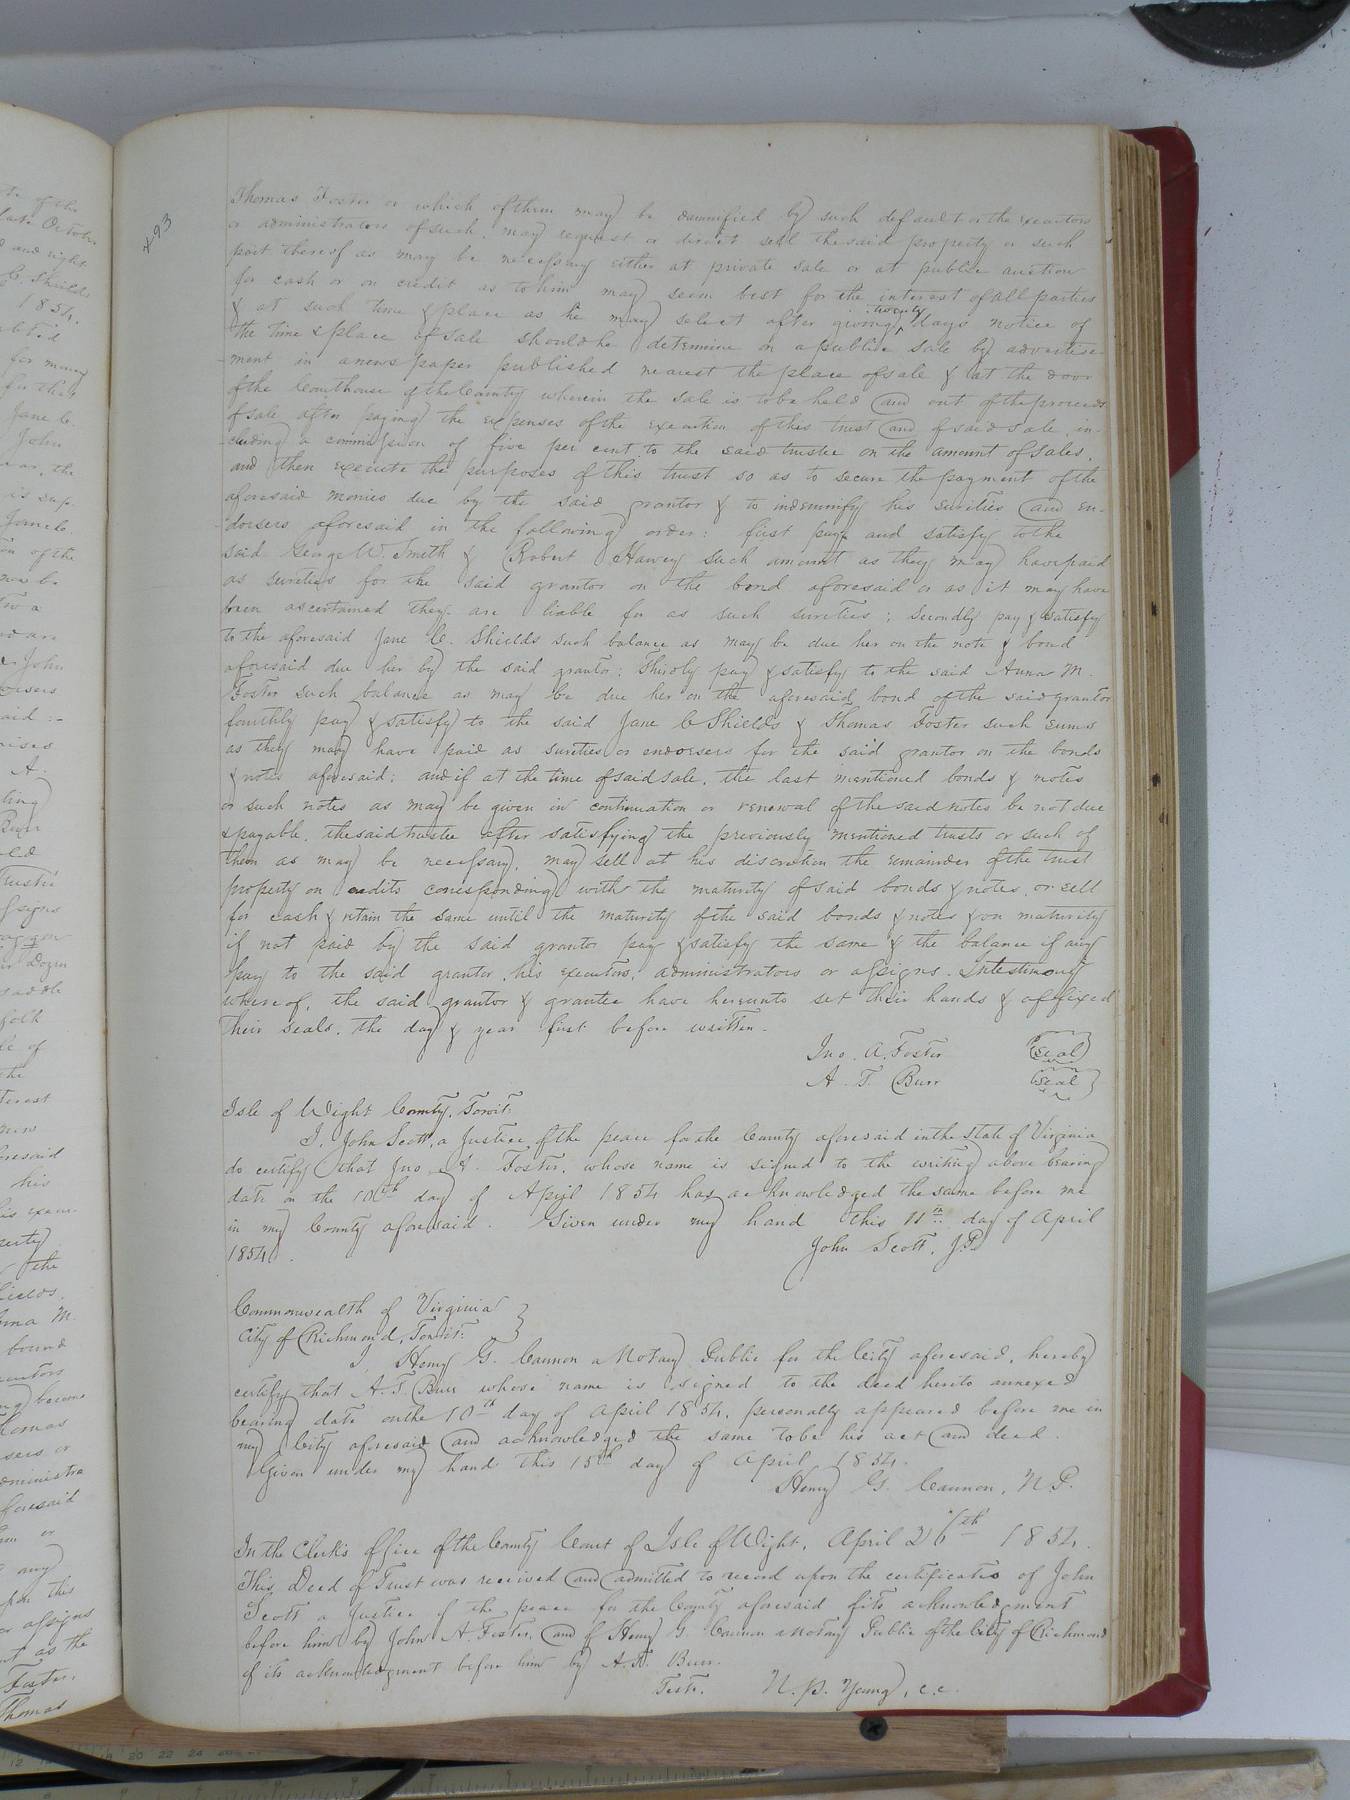 493
Thomas Foster or which of them may be damnified by such default or the executors
or administrators of such, may request or direct sell the said property or such
part thereof as may be necessary either at private sale or at public auction
for cash or on credit as to him may seem best for the interest of all parties
& at such time & place as he may select after giving twenty days notice of
the time & place of sale should he determine on a public sale by advertise-
-ment in a newspaper published nearest the place of sale & at the door
of the Courthouse of the County wherein the sale is to be held and out of the proceeds
of sale after paying the expenses of the execution of this trust and of said sale, in-
-cluding a commission of five per cent to the said trustee on the amount of sales,
and then execute the purposes of this trust so as to secure the payment of the
aforesaid monies due by the said grantor & to indemnify his sureties and en-
-dorsers aforesaid in the following order: first pay and satisfy to the
said George W. Smith & Robert Hawey such amount as they may have paid
as sureties for the said grantor on the bond aforesaid or as it may have
been ascertained they are liable for as such sureties; Secondly pay & satisfy
to the aforesaid Jane C. Shields such balance as may be due her on the note & bond
aforesaid due her by the said grantor: Thirdly pay & satisfy to the said Anna M.
Foster such balance as may be due her on the aforesaid bond of the said grantor
fourthly pay & satisfy to the said Jane C Shields & Thomas Foster such sums
as they may have paid as sureties or endorsers for the said grantor on the bonds
& notes aforesaid: and if at the time of said sale, the last mentioned bonds & notes
or such notes as may be given in continuation or renewal of the said notes be not due
& payable, the said trustee after satisfying the previously mentioned trusts or such of
them as may be necessary, may sell at his discretion the remainder of the trust
property on credits corresponding with the maturity of said bonds & notes, or sell
for cash & retain the same until the maturity of the said bonds & notes & on maturity
if not paid by the said grantor pay & satisfy the same & the balance if any
pay to the said grantor, his executors, administrators or assigns. In testimony
whereof, the said grantor & grantee have hereunto set their hands & affixed
their seals, the day & year first before written.
Jno. A. Foster (seal)
A. T. Burr (seal)
Isle of Wight County, Towit:
I, John Scott, a Justice of the peace for the County aforesaid in the State of Virginia
do certify that Jno A. Foster, whose name is signed to the writing above bearing
date on the 10th day of April 1854 has acknowledged the same before me
in my County aforesaid. Given under my hand this 11th day of April
1854. John Scott, J.P.
Commonwealth of Virginia }
City of Richmond, Towit:
I, Henry G. Cannon a Notary Public for the City aforesaid, hereby
certify that A. T. Burr whose name is signed to the deed hereto annexed
bearing date on the 10th day of April 1854, personally appeared before me in
my City aforesaid and acknowledged the same to be his act and deed.
Given under my hand this 15th day of April 1854.
Henry G. Cannon, N P.
In the Clerk's Office of the County Court of Isle of Wight, April 26th 1854.
This Deed of Trust was received and admitted to record upon the certificates of John
Scott a Justice of the peace for the County aforesaid of its acknowledgment
before him by John A. Foster, and of Henry G. Cannon a Notary Public of the City of Richmond
of its acknowledgment before him by A. T. Burr.
Teste. N. P. Young, c.c.